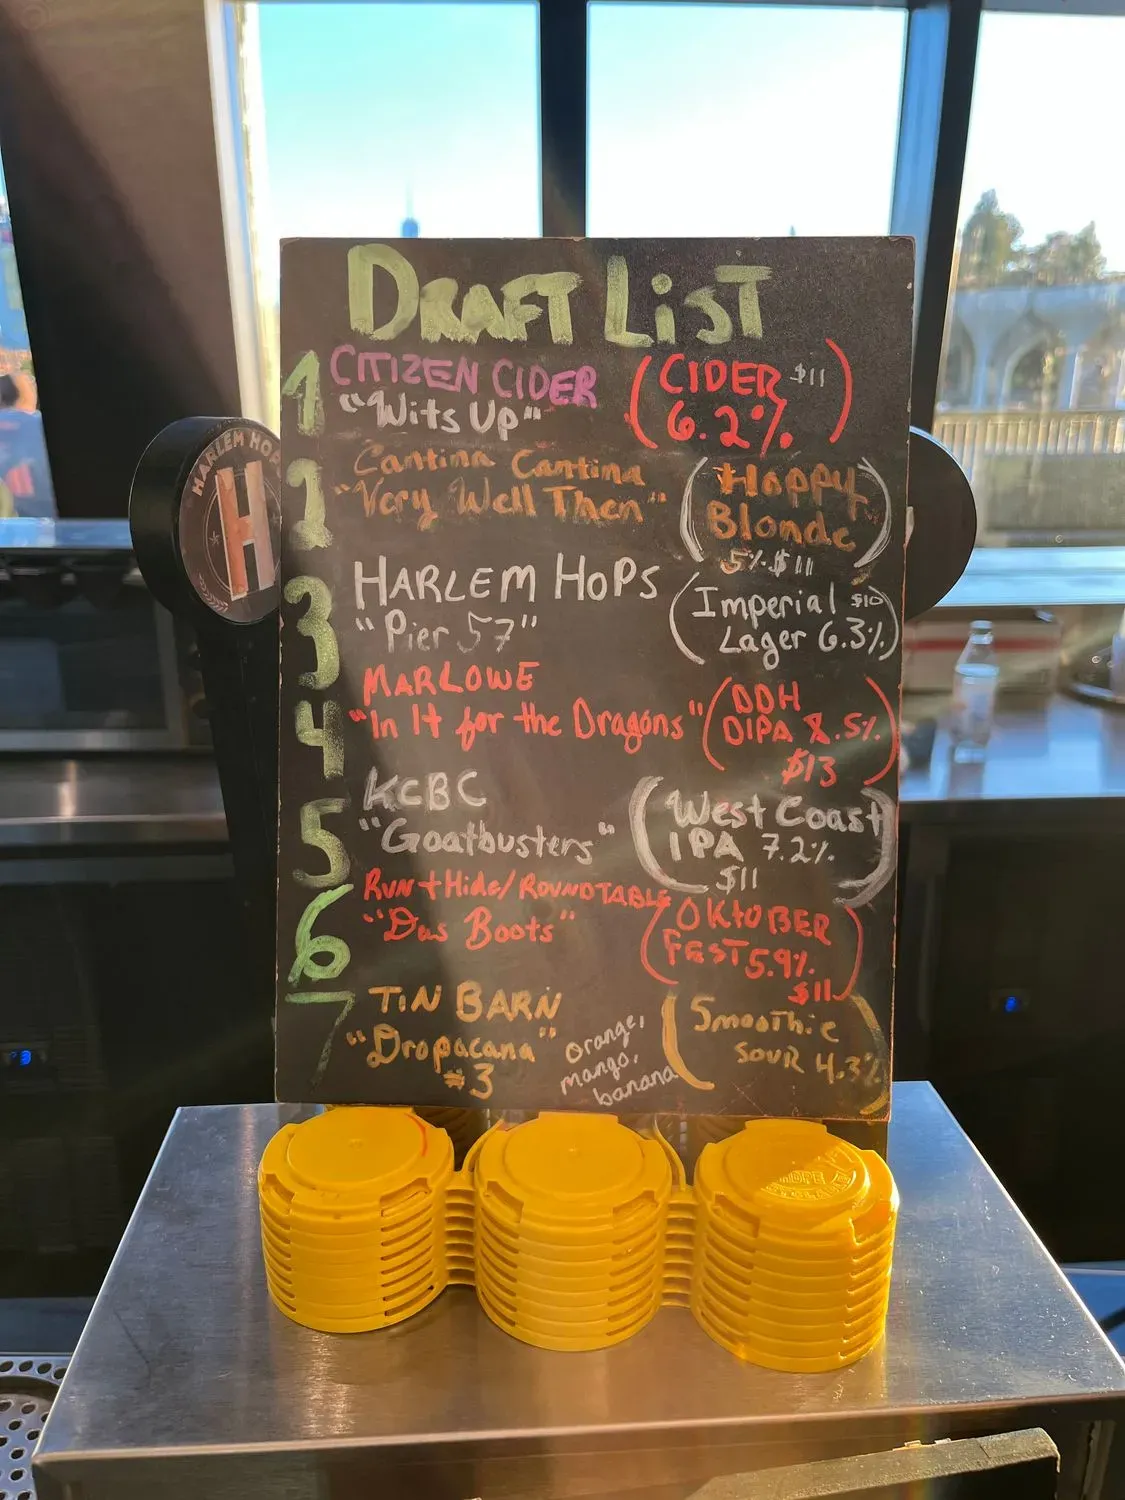 DRAFT LIST
1 CITIZEN CIDER
"Wits Up"
(CIDER $11
6.2%.)
2 Cantina Cantina
"Very Well Then"
(Hoppy
Blonde
5% $11)
3 HARLEM HOPS
"Pier 57"
(Imperial $10
Lager 6.3%)
4 MARLOWE
"In It for the Dragons"
(DDH
DIPA 8.5%.
$13)
5 KCBC
"Goatbusters"
(West Coast
IPA 7.2%.
$11)
6 Run + Hide/ROUNDTABLE
"Das Boots"
(OKtOBER
FEST 5.9%.
$11)
7 TIN BARN
"Dropacana"
#3
orange,
mango,
banana
(Smoothie
SOUR 4.3%)
HARLEM HOPS
H